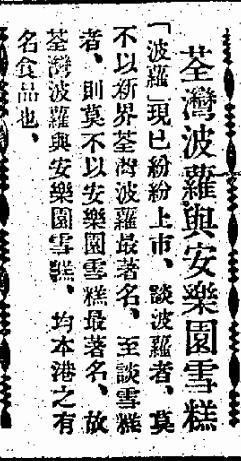 荃灣波蘿與安樂園雪糕
「波蘿」現已紛紛上市、談波蘿者、莫
不以新界荃灣波蘿最著名、至談雪糕
者、則莫不以安樂園雪糕最著名、故
荃灣波蘿與安樂園雪糕、均本港之有
名食品也、